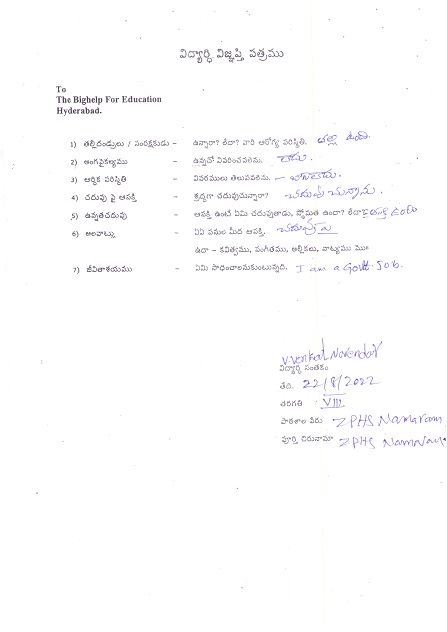 విద్యార్థి విజ్ఞప్తి పత్రము
To
The Bighelp For Education
Hyderabad.
1) తల్లిదండ్రులు / సంరక్షకుడు – ఉన్నారా? లేదా? వారి ఆరోగ్య పరిస్థితి. తల్లి ఉంది.
2) అంగవైకల్యము – ఉన్నచో వివరించవలెను. లేదు.
3) ఆర్థిక పరిస్థితి – వివరములు తెలుపవలెను. – బాగాలేదు.
4) చదువు పై ఆసక్తి – శ్రద్ధగా చదువుచున్నారా? చదువుచున్నాను.
5) ఉన్నతచదువు – ఆసక్తి ఉంటే ఏమి చదువుతాడు, స్తోమత ఉందా? లేదా? ఆసక్తి ఉంది
6) అలవాట్లు – ఏఏ పనుల మీద ఆసక్తి.
ఉదా – కవిత్వము, సంగీతము, అల్లికలు, నాట్యము మొ॥
7) జీవితాశయము – ఏమి సాధించాలనుకుంటున్నది. I am a Govtt Job.
V. Venkat Narendar
విద్యార్థి సంతకం
తేది. 22/8/2022
తరగతి VIII
పాఠశాల పేరు ZPHS Namaram
పూర్తి చిరునామా ZPHS Namaram